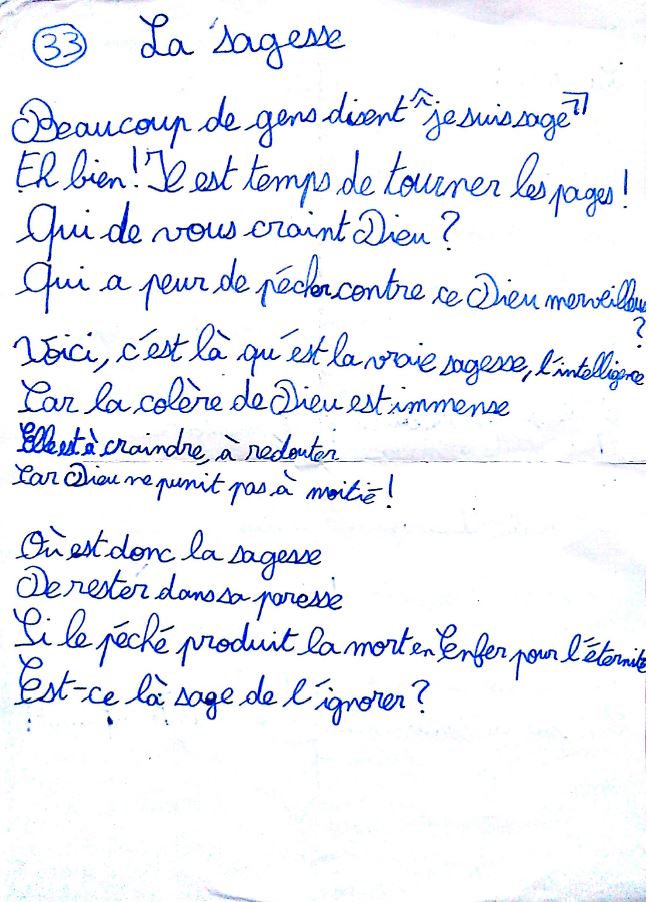 33 La sagesse
Beaucoup de gens disent "je suis sage"
Eh bien! Il est temps de tourner les pages!
Qui de vous craint Dieu?
Qui a peur de pécher contre ce Dieu merveilleux
?
Voici, c'est là qu'est la vraie sagesse, l'intelligence
Car la colère de Dieu est immense
Elle est à craindre, à redouter
Car Dieu ne punit pas à moitié!
Où est donc la sagesse
De rester dans sa paresse
Si le péché produit la mort en Enfer pour l'éternité
Est-ce là sage de l'ignorer?